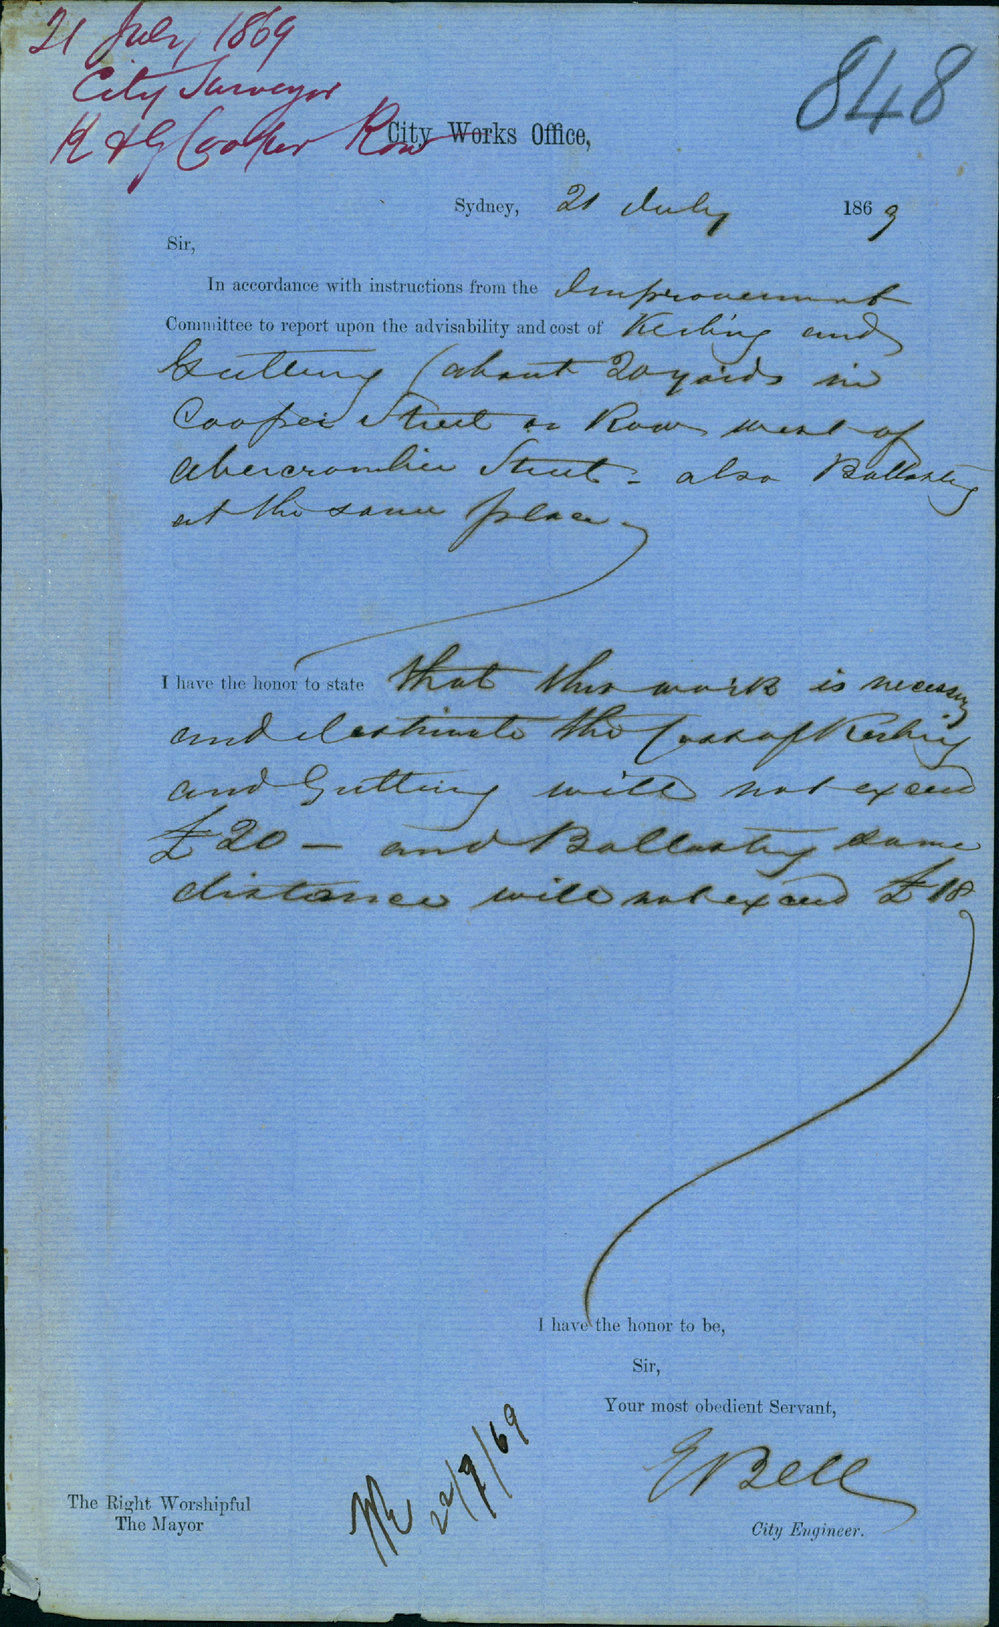 21 July 1869
City Surveyor
K & G Cooper Row
848
City Works Office,
Sydney, 21 July 1869
Sir,
In accordance with instructions from the Improvement
Committee to report upon the advisability and cost of Kerbing and
Guttering (about 20 yards in
Cooper Street or Row west of
Abercrombie Street - also Ballasting
at the same place
I have the honor to state that this work is necessary
and I estimate the Cost of Kerbing
and Guttering will not exceed
£20 — and Ballasting same
distance will not exceed £18
I have the honor to be,
Sir,
Your most obedient Servant,
E Bell
City Engineer.
22/7/69
The Right Worshipful
The Mayor